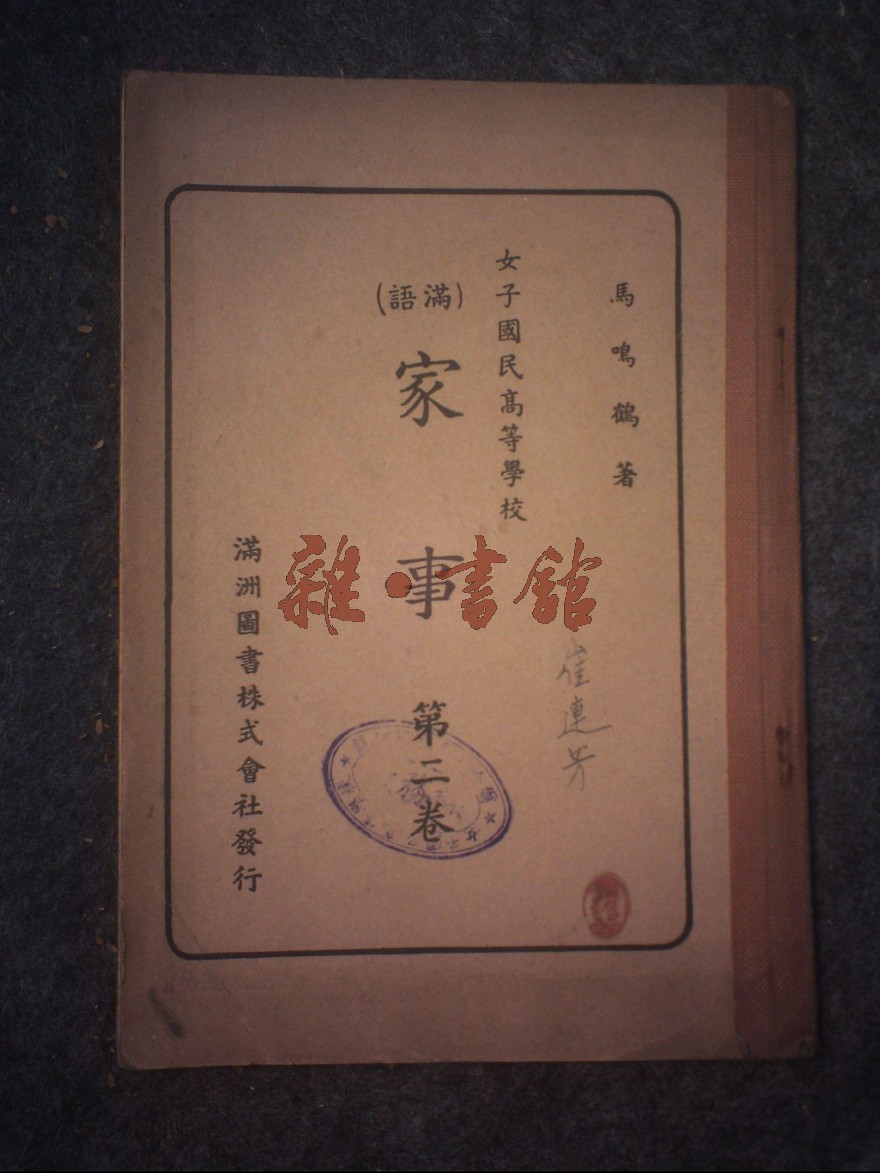 馬鳴鶴著
女子國民高等學校
(滿語)
家事 第二卷
滿洲圖書株式會社發行
崔連芳
雜·書館